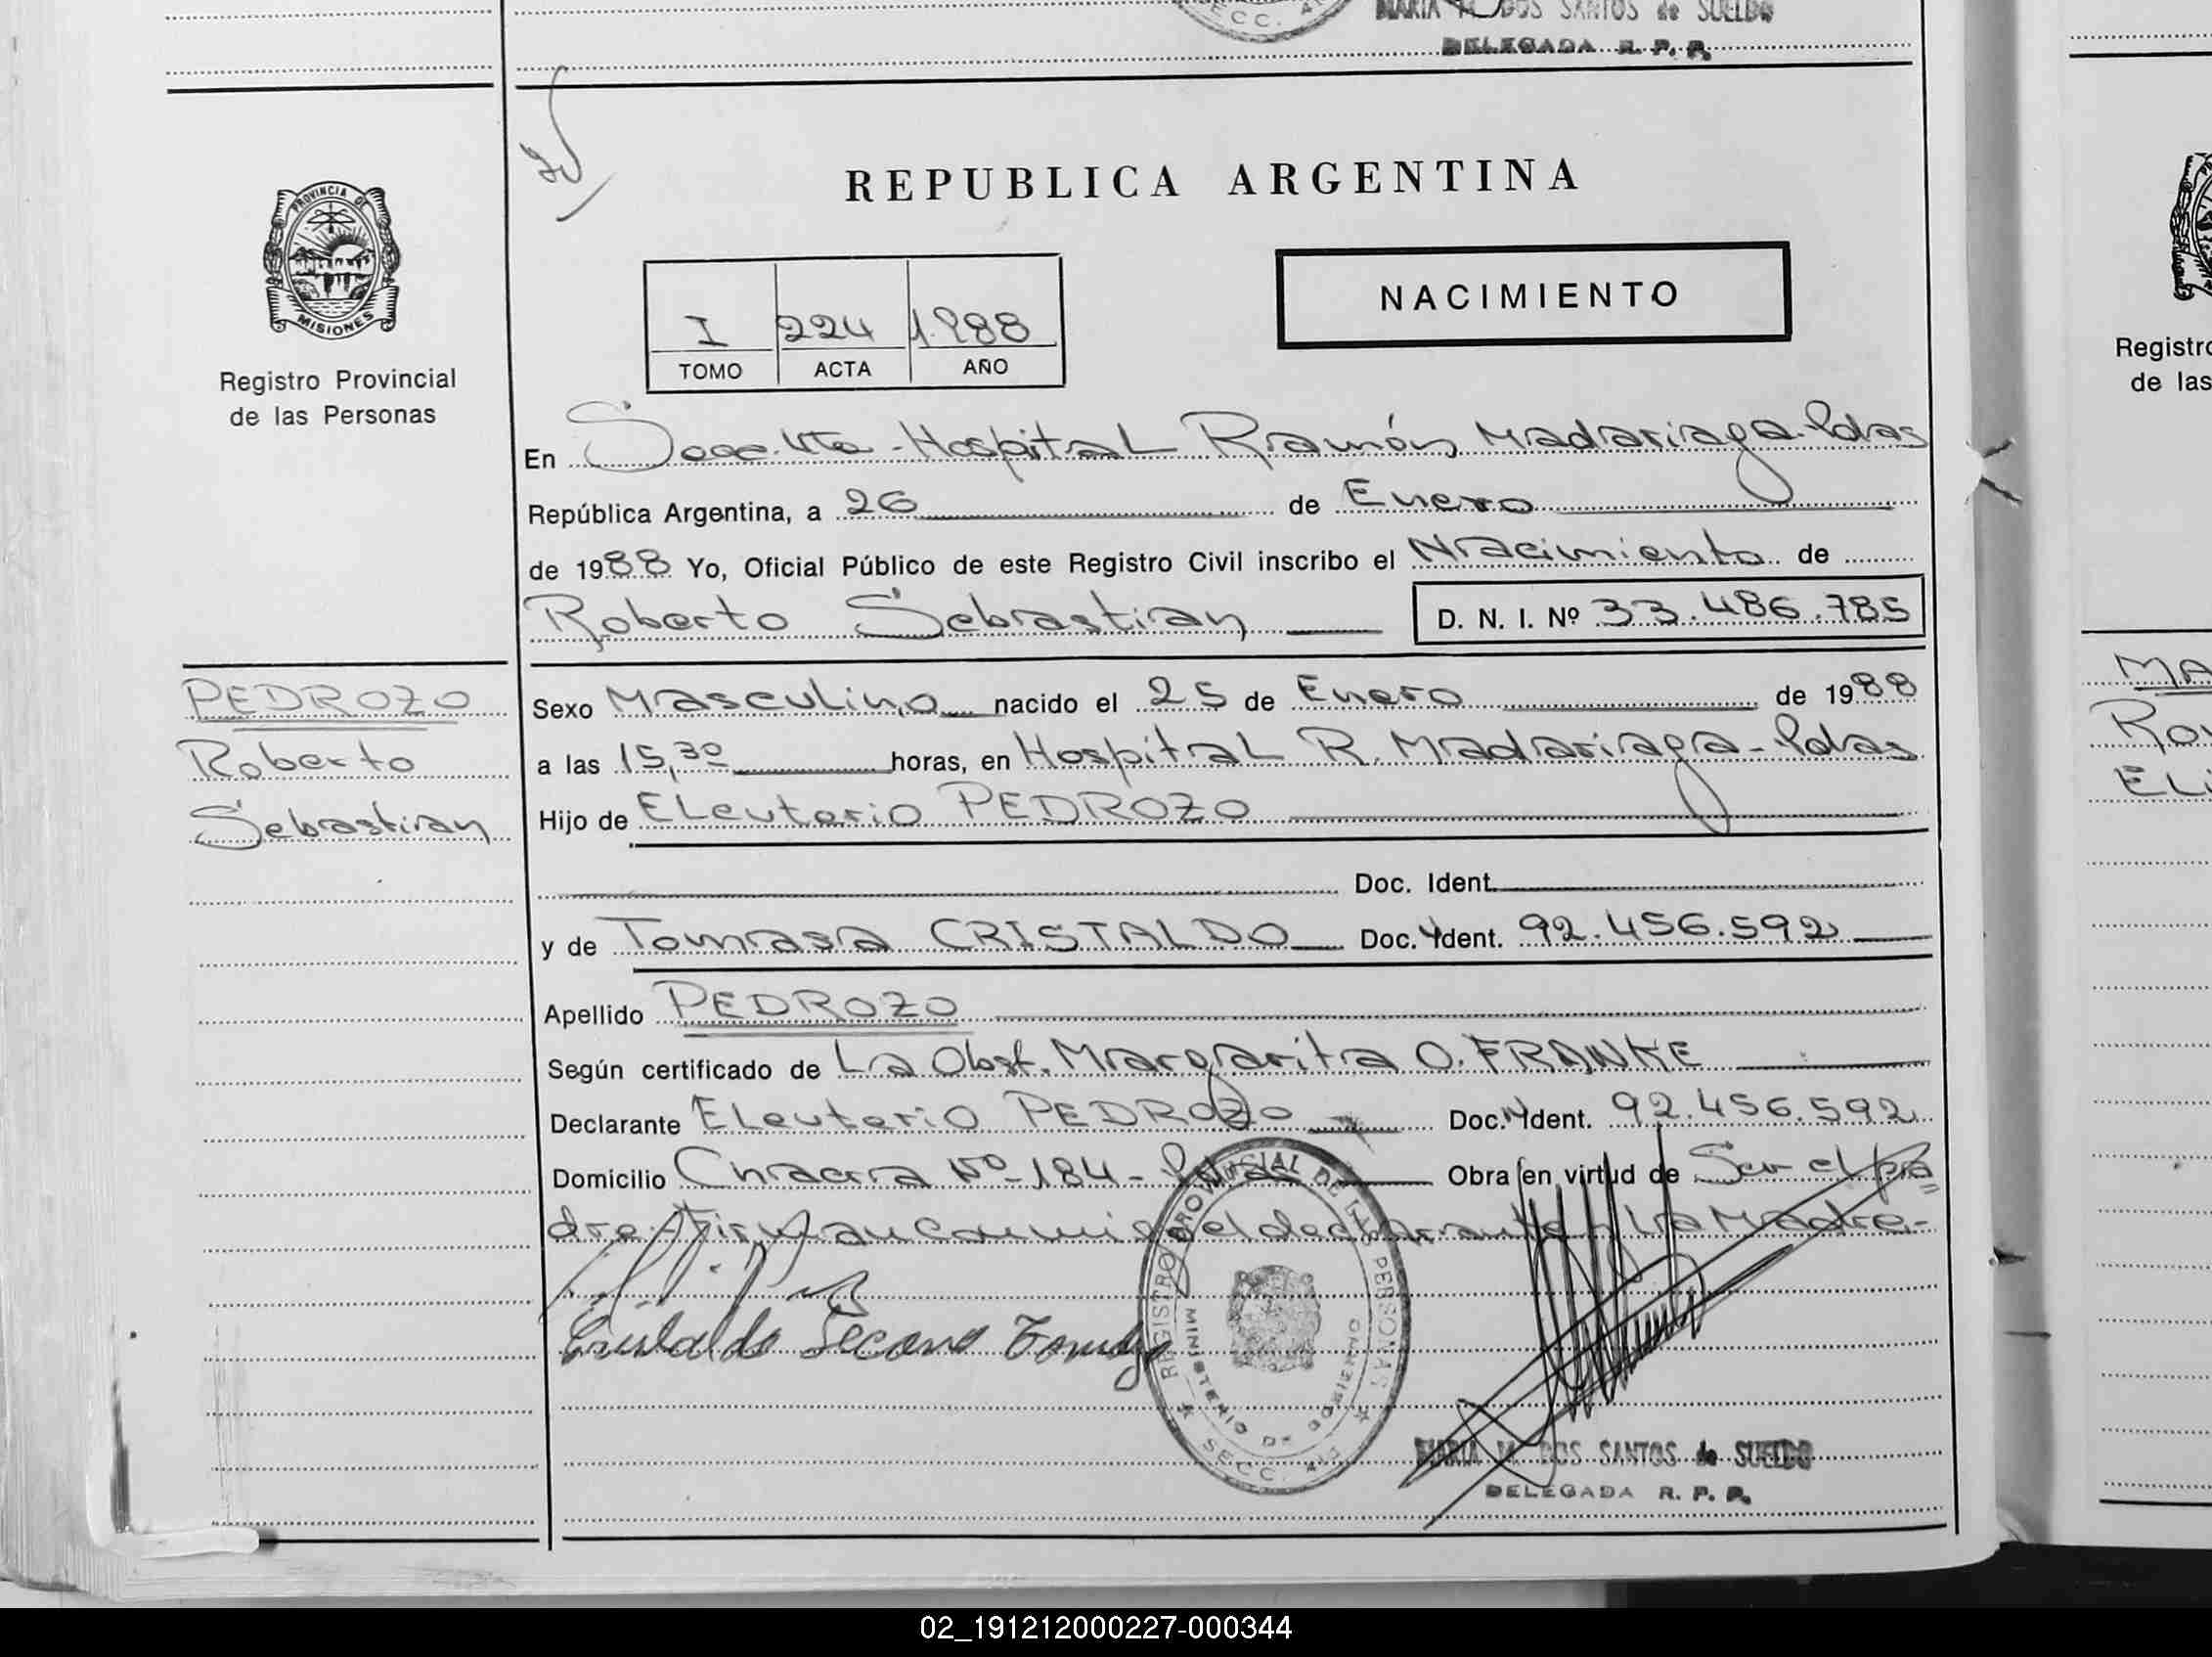 MARIA M. DOS SANTOS de SUELDO
DELEGADA R. P. P.
REPUBLICA ARGENTINA
PROVINCIA DE
MISIONES
Registro Provincial
de las Personas
NACIMIENTO
I 224 1.988
TOMO ACTA AÑO
En Secc. 4ta - Hospital Ramón Madariaga - Pdas
República Argentina, a 26 de Enero
de 1988 Yo, Oficial Público de este Registro Civil inscribo el Nacimiento de
Roberto Sebastian D. N. I. Nº 33.486.785
PEDROZO
Roberto
Sebastian
Sexo Masculino nacido el 25 de Enero de 1988
a las 15,30 horas, en Hospital R. Madariaga - Pdas
Hijo de Eleuterio PEDROZO
Doc. Ident.
y de Tomasa CRISTALDO Doc. Ident. 92.456.592
Apellido PEDROZO
Según certificado de La Obst. Margarita O. FRANKE
Declarante Eleuterio PEDROZO Doc. Ident. 92.456.592
Domicilio Chacra Nº 184 - Pdas Obra en virtud de Ser el pa
dre. Firman conmigo el declarante y la Madre.-
Cristaldo
REGISTRO PROVINCIAL DE LAS PERSONAS
MINISTERIO DE GOBIERNO
SECC.
MARIA M. DOS SANTOS de SUELDO
DELEGADA R. P. P.
Registro
de las
MA
Ro
ELi
02_191212000227-000344